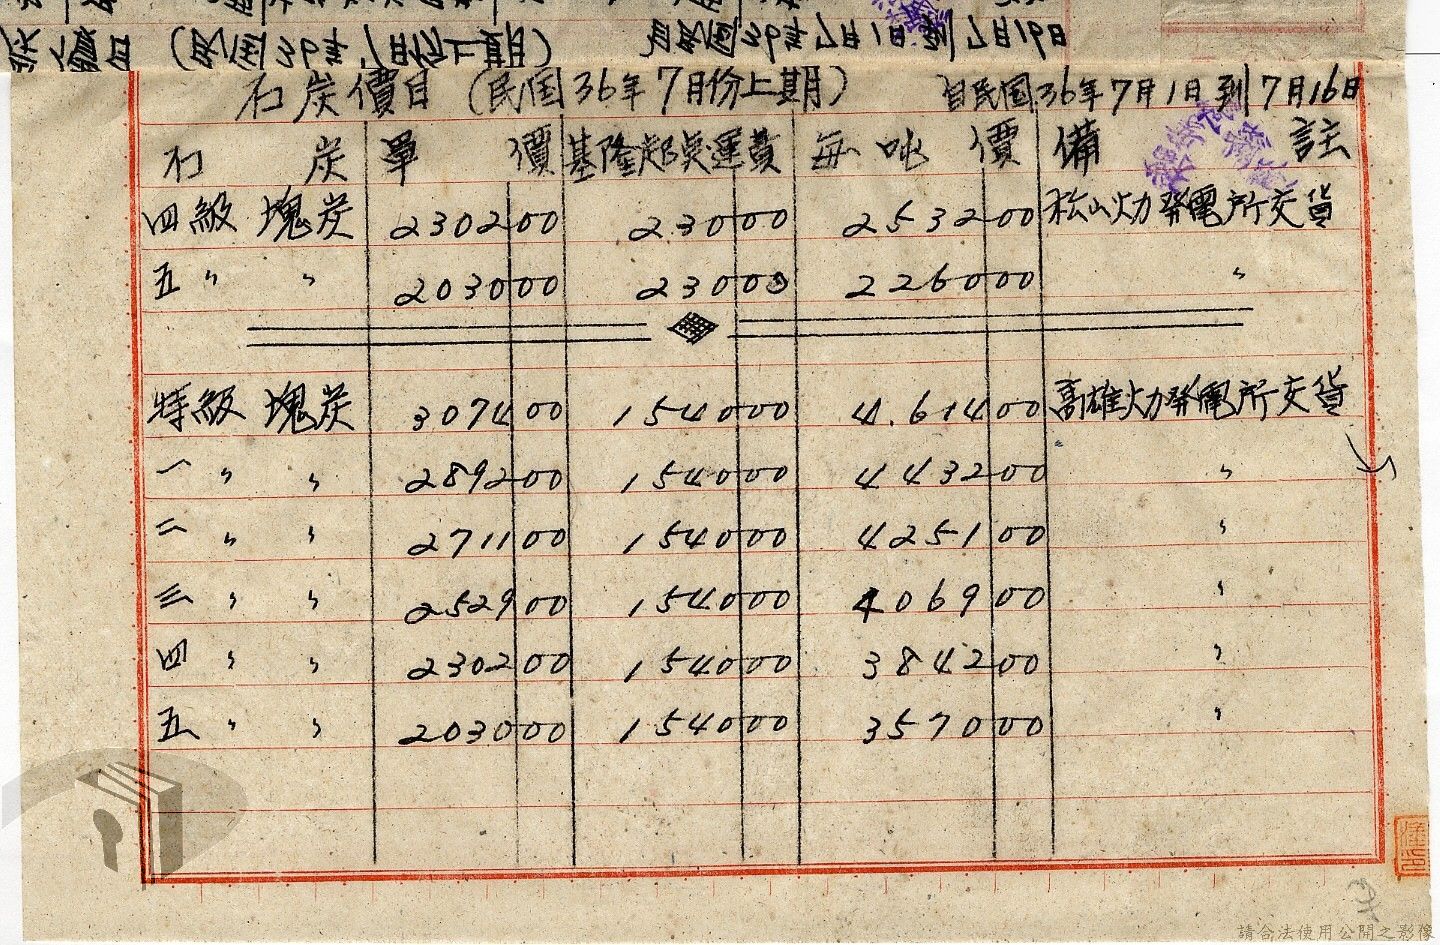 (民国36年7月份上期) 自民國36年7月1日到7月16日
石炭價目(民国36年7月份上期) 自民國36年7月1日到7月16日
石炭 單價 基隆起算運費 每吨價 備註
四級 塊炭 230200 23000 253200 松山火力發電所交貨
五〃 〃 203000 23000 226000 〃
特級 塊炭 307400 154000 4.61400 高雄火力發電所交貨
一〃 〃 289200 154000 443200 〃
二〃 〃 271100 154000 425100 〃
三〃 〃 252900 154000 406900 〃
四〃 〃 230200 154000 384200 〃
五〃 〃 203000 154000 357000 〃
請合法使用公開之影像